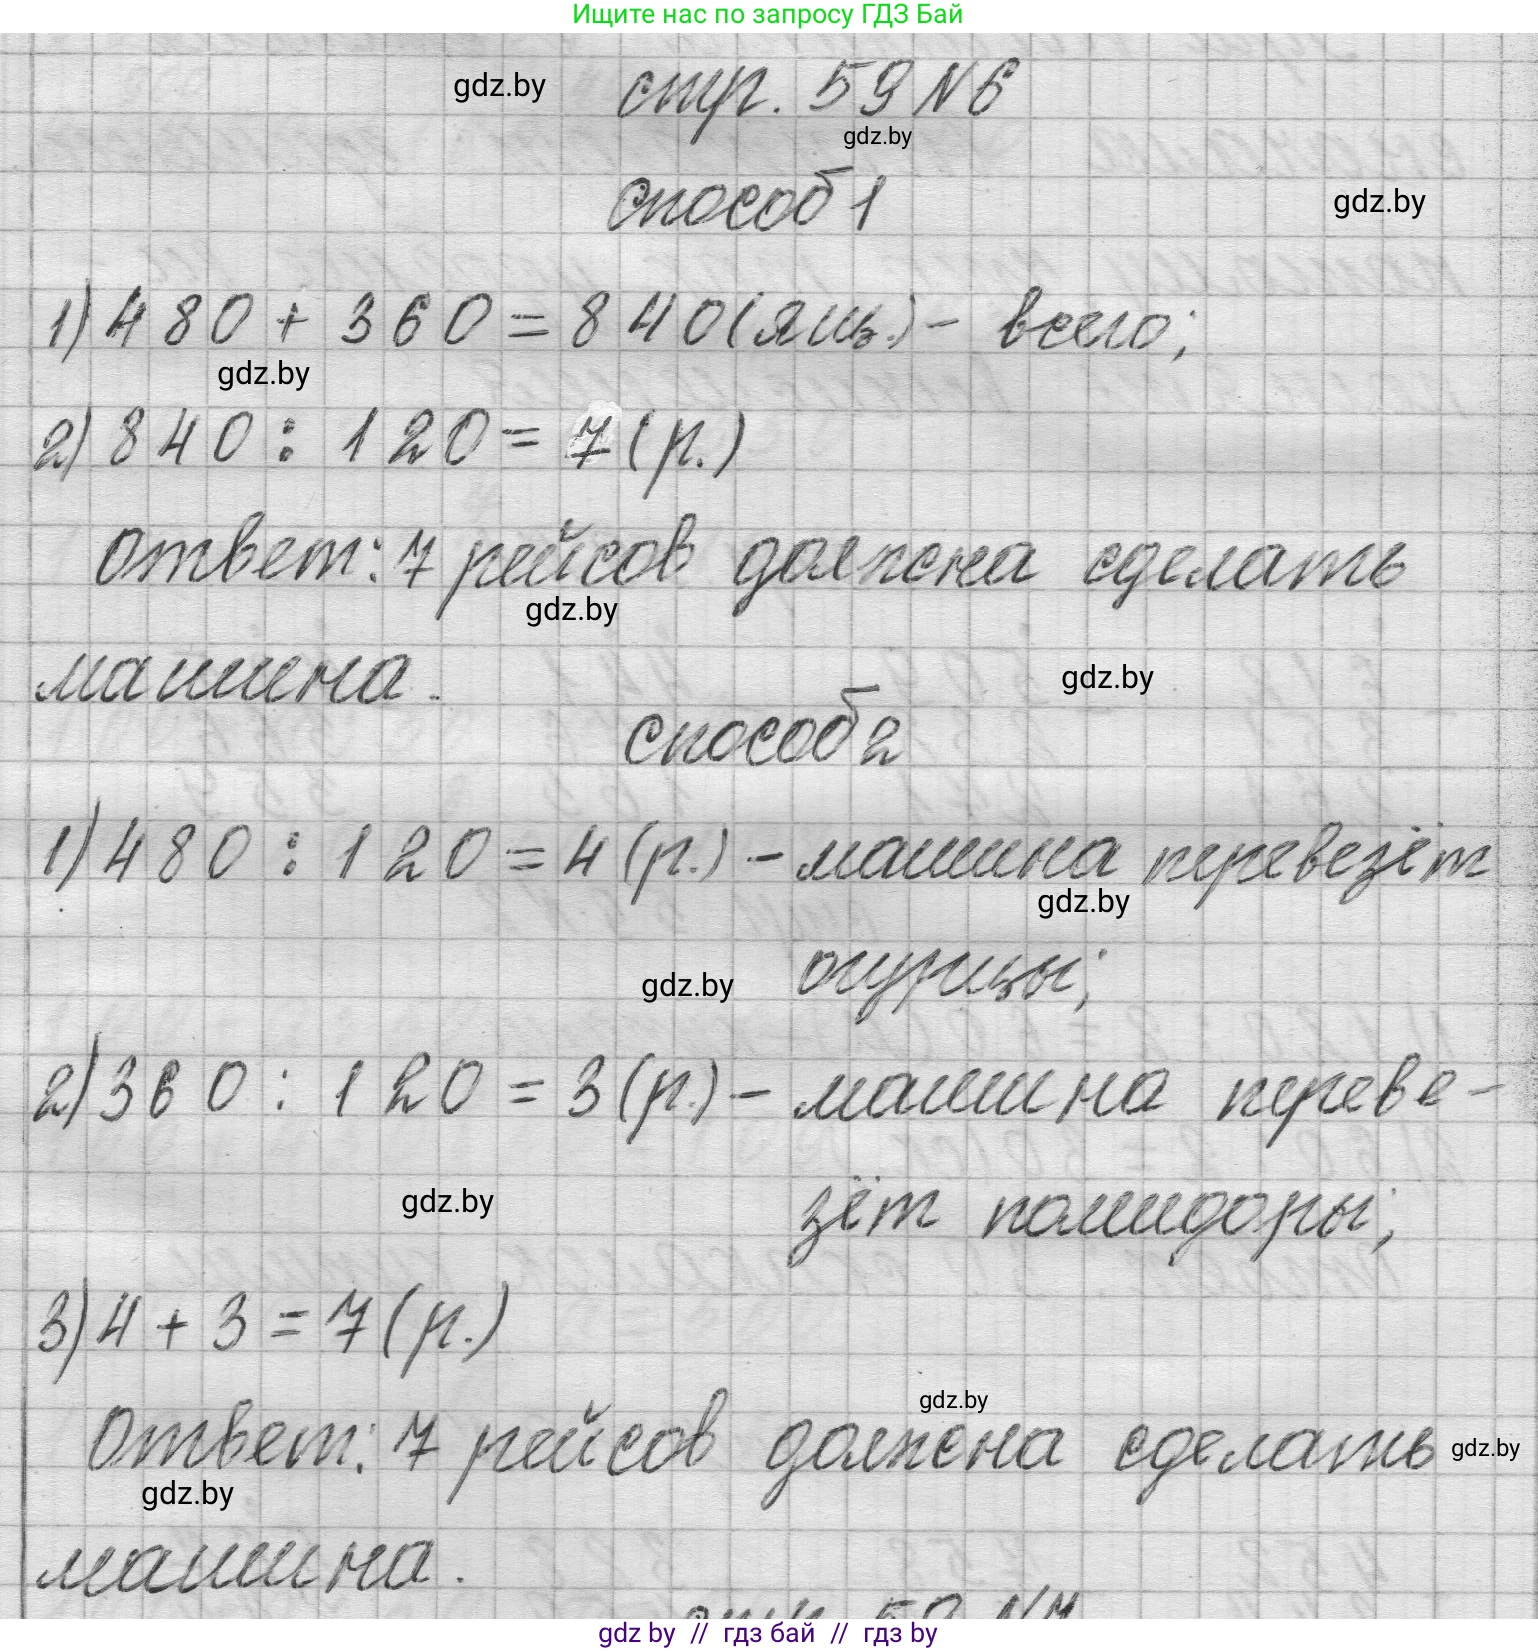 Ищите нас по запросу ГДЗ Бай
gdz.by стр. 59 N 6
gdz.by
способ 1 gdz.by
1) 480 + 360 = 840 (ящ.) - всего;
gdz.by
2) 840 : 120 = 7 (р.)
Ответ: 7 рейсов должна сделать
gdz.by
машина. gdz.by
способ 2
1) 480 : 120 = 4 (р.) - машина перевезёт
gdz.by
gdz.by огурцы;
2) 360 : 120 = 3 (р.) - машина переве-
gdz.by
зёт помидоры;
3) 4 + 3 = 7 (р.)
gdz.by
Ответ: 7 рейсов должна сделать gdz.by
gdz.by
машина.
стр. 59 N7
gdz by // гдз бай // гдз by